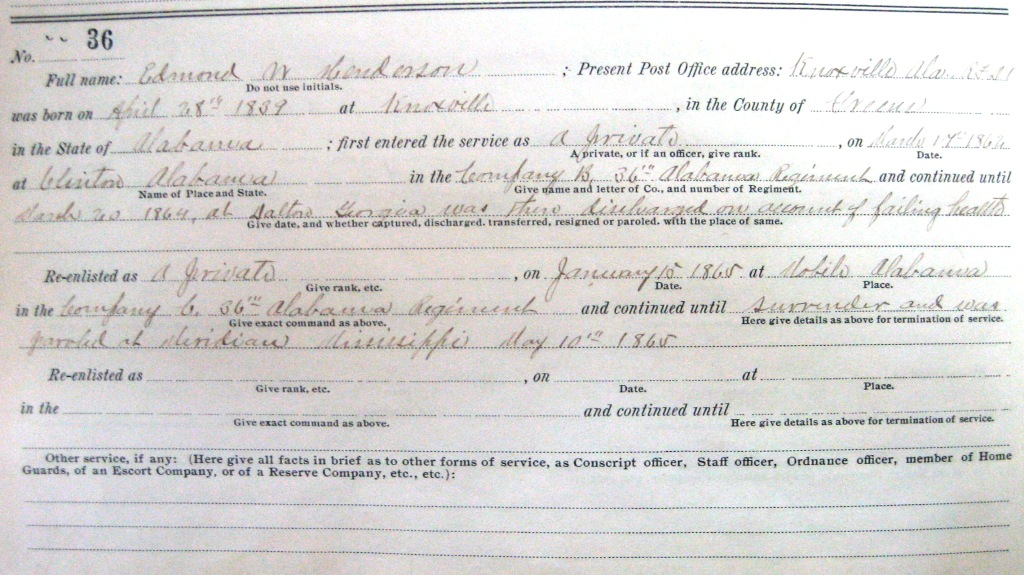 No. 36
Full name: Edmond W Henderson ; Present Post Office address: Knoxville Ala.
Do not use initials.
was born on April 28th 1839 at Knoxville , in the County of Greene
in the State of Alabama ; first entered the service as A private , on March 17th 1862
A private, or if an officer, give rank. Date.
at Clinton Alabama in the Company B, 36th Alabama Regiment and continued until
Name of Place and State. Give name and letter of Co., and number of Regiment.
March 20 1864, at Dalton Georgia was then discharged on account of failing health
Give date, and whether captured, discharged, transferred, resigned or paroled, with the place of same.
Re-enlisted as A private , on January 15 1865 at Mobile Alabama
Give rank, etc. Date. Place.
in the Company C. 36th Alabama Regiment and continued until surrinder and was
Give exact command as above. Here give details as above for termination of service.
paroled at Meridian Mississippi May 10th 1865
Re-enlisted as , on at
Give rank, etc. Date. Place.
in the and continued until
Give exact command as above. Here give details as above for termination of service.
Other service, if any: (Here give all facts in brief as to other forms of service, as Conscript officer, Staff officer, Ordnance officer, member of Home
Guards, of an Escort Company, or of a Reserve Company, etc., etc.):